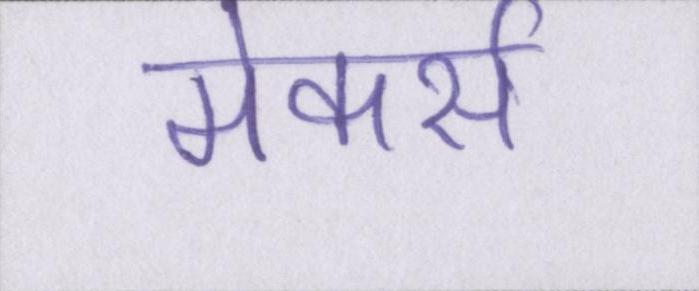 मेकर्स